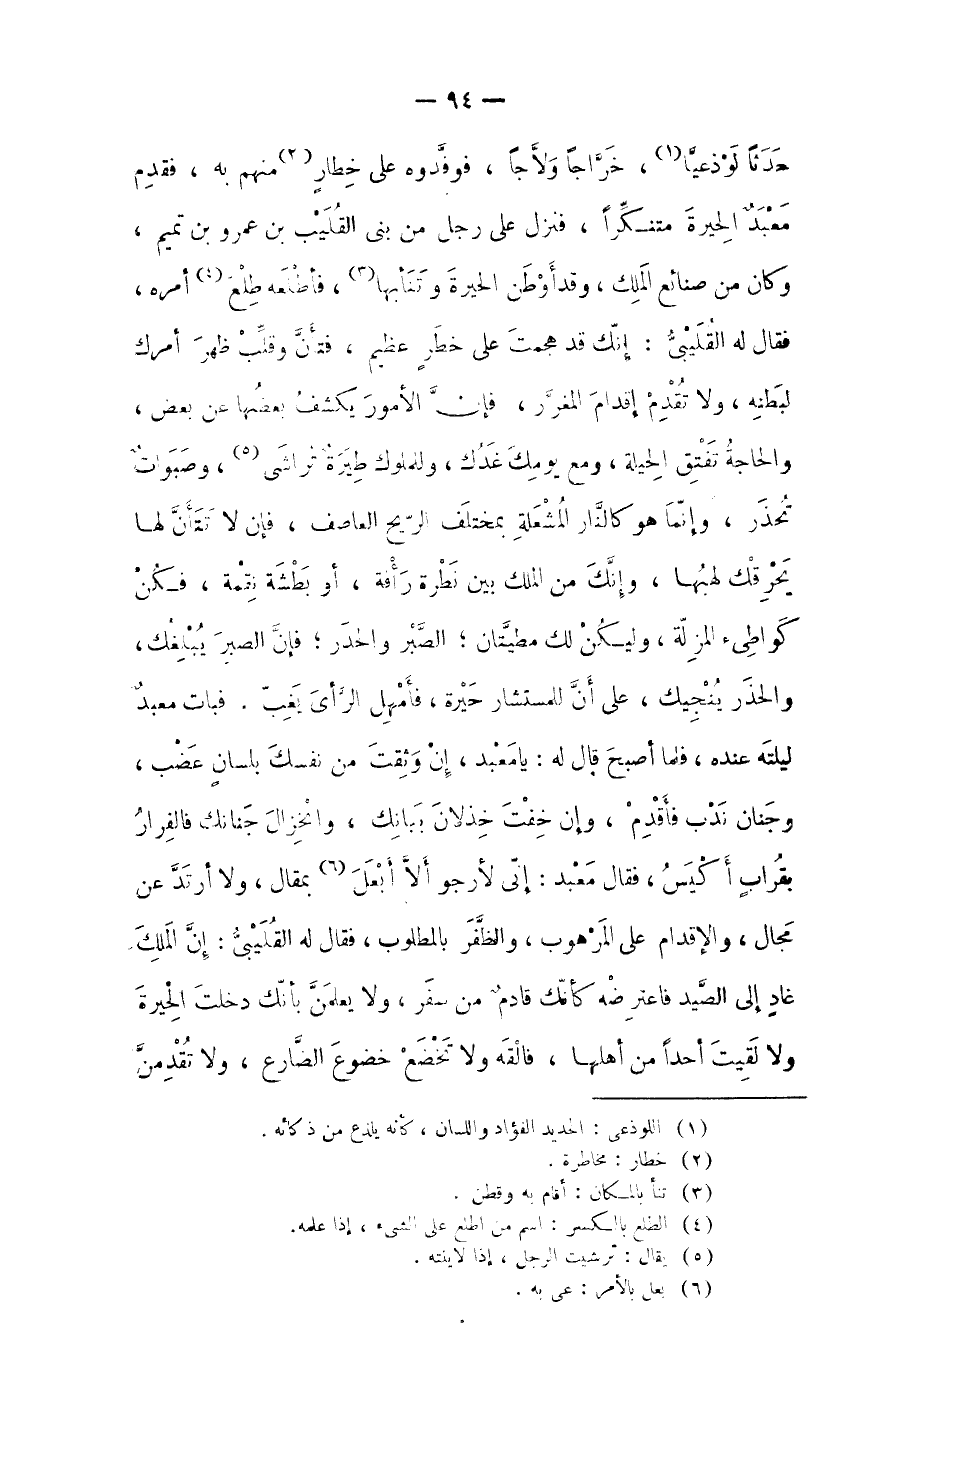 — ٩٤ —
حَدَثاً لَوْذعيًّا(١) ، خَرَّاجاً وَلاَّجاً ، فوفَّدوه على خِطارٍ(٢) منهم به ، فقدِم
مَعْبَدٌ الحِيرةَ متنـكِّراً ، فنزل على رجل من بنى القُلَيْب بن عمرو بن تميم ،
وكان من صنائع المَلِك ، وقد أَوْطَن الحيرةَ وتَنَأَ بها(٣) ، فأطْلَعه طِلْعَ(٤) أمره ،
فقال له القُلَيْبىُّ : إنّك قد هجمتَ على خطَرٍ عظيم ، فتأنَّ وقلِّبْ ظهرَ أمرك
لبَطنِه ، ولا تُقْدِمْ إقدامَ المغرَّر ، فإنَّ الأمورَ يَكشفُ بعضُها عن بعض ،
والحاجةُ تَفْتِق الحِيلة ، ومع يومِكَ غَدُك ، وللملوك طِيَرَةٌ تُراشَى(٥) ، وصَبَوَاتٌ
تُحذَر ، وإنّما هو كالنَّار المُشْعَلةِ بمختلَف الرّيح العاصف ، فإن لا تَتَأَنَّ لهـا
يَحْرِقْك لهبُهـا ، وإنَّكَ من الملك بين نَظْرة رَأْفة ، أو بَطْشَة نِقْمة ، فـكُنْ
كَواطِىء المزِلّة ، وليـكُنْ لك مطيَّتان ؛ الصَّبْر والحذَر ؛ فإنَّ الصبرَ يُبْلِغُك ،
والحذَر يُنْجِيك ، على أَنَّ للمستشار حَيْرة ، فأَمْهِل الرَّأىَ يَغِبّ . فبات معبدٌ
ليلتَه عنده ، فلما أصبحَ قال له : يامَعْبد ، إنْ وَثِقتَ من نفسكَ بلسانٍ عَضْب ،
وجَنان نَدْب فأَقْدِمْ ، وإن خِفْتَ خِذلانَ بَيَانِك ، وانْخِزالَ جَنانك فالفِرارُ
بقُرابٍ أَكْيَسُ ، فقال مَعْبد : إنّى لأرجو ألاَّ أَبْعَلَ(٦) بمقال ، ولا أرتدَّ عن
مَجال ، والإقدام على المَرْهوب ، والظَّفَرَ بالمطلوب ، فقال له القُلَيْبىُّ : إنَّ المَلِكَ
غادٍ إلى الصَّيد فاعترِضْه كأنّك قادمٌ من سفَر ، ولا يعلمَنَّ بأنّك دخلتَ الحِيرةَ
ولا لَقِيتَ أحداً من أهلهـا ، فالْقَه ولا تَخْضَعْ خضوعَ الضَّارع ، ولا تُقْدِمنَّ
(١) اللوذعى : الحديد الفؤاد واللسان ، كأنه يلذع من ذكائه .
(٢) خطار : مخاطرة .
(٣) تنأ بالمـكان : أقام به وقطن .
(٤) الطلع بالـكسر : اسم من اطلع على الشىء ، إذا علمه.
(٥) يقال : ترشيت الرجل ، إذا لاينته .
(٦) بعل بالأمر : عى به .